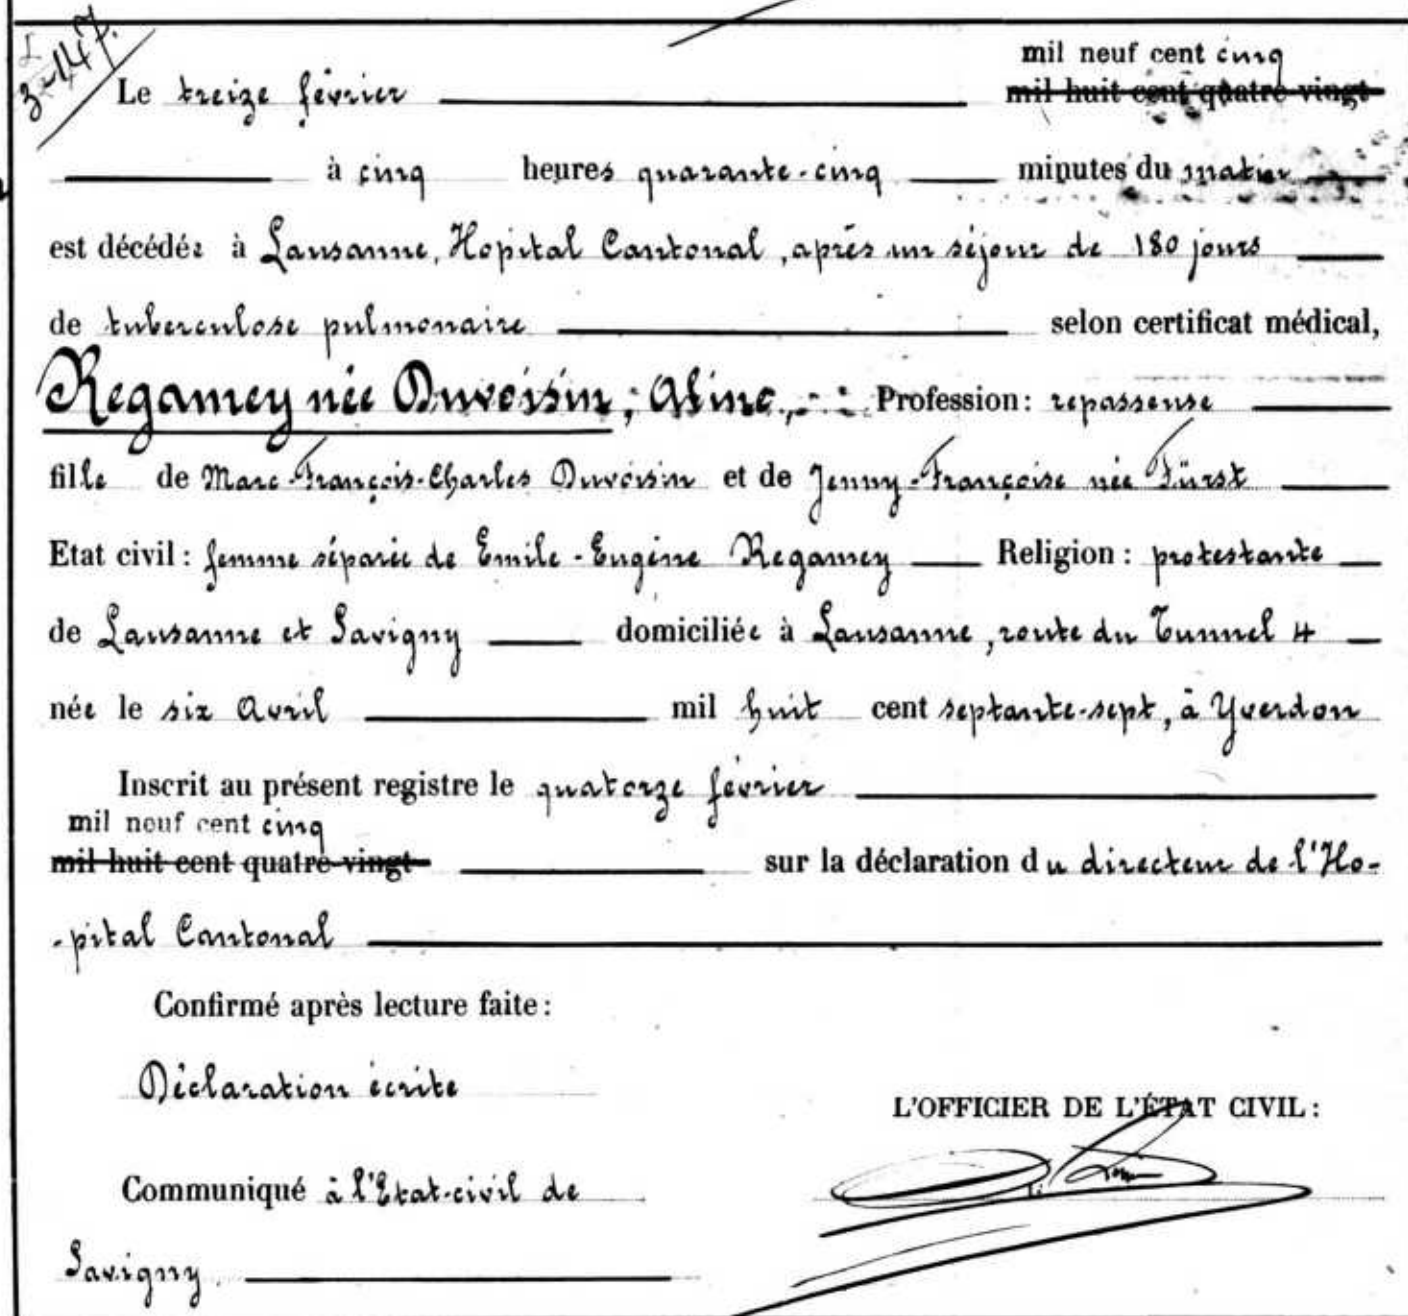 3-147.
mil neuf cent cinq
Le treize février mil huit cent quatre-vingt
à cinq heures quarante-cinq minutes du matin
est décédée à Lausanne, Hopital Cantonal, après un séjour de 180 jours
de tuberculose pulmonaire selon certificat médical,
Regamey née Duvoisin, Aline, Profession: repasseuse
fille de Marc-François-Charles Duvoisin et de Jenny-Françoise née Fürst
Etat civil: femme séparée de Emile-Eugène Regamey Religion: protestante
de Lausanne et Savigny domiciliée à Lausanne, route du Tunnel 4
née le six Avril mil huit cent septante-sept, à Yverdon
Inscrit au présent registre le quatorze février
mil neuf cent cinq
mil huit cent quatre-vingt sur la déclaration du directeur de l'Ho-
-pital Cantonal
Confirmé après lecture faite:
Déclaration écrite
L'OFFICIER DE L'ÉTAT CIVIL:
Communiqué à l'Etat-civil de
Savigny.